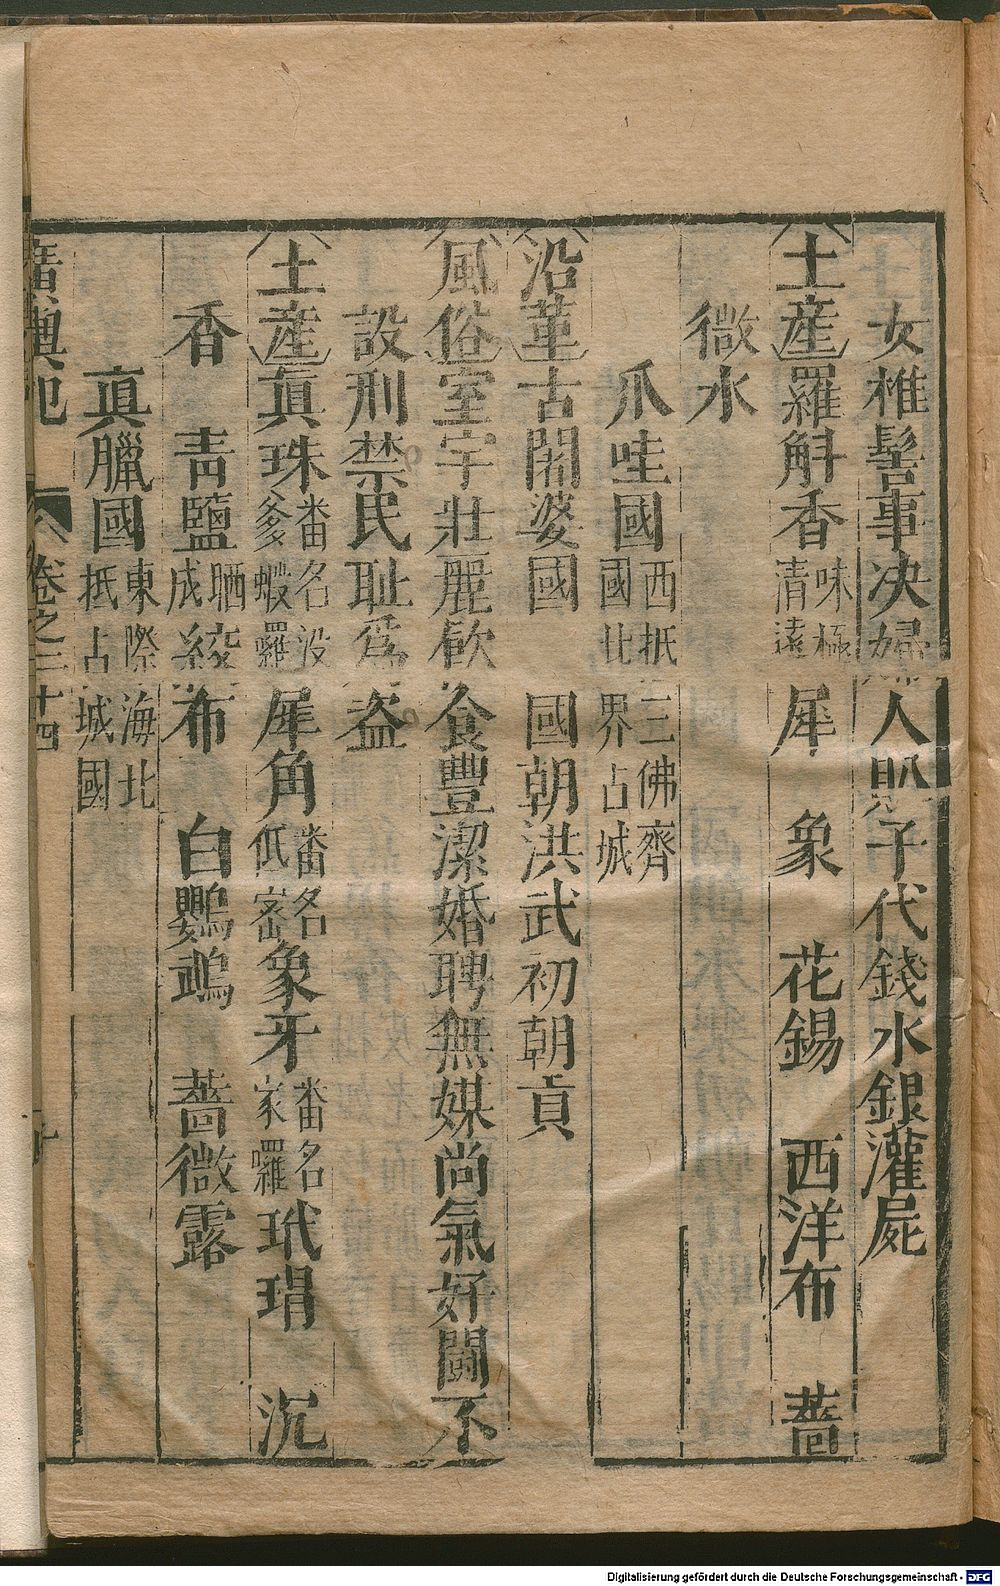 女椎髻事决婦人𧴩子代錢水銀灌屍
土産羅斛香味極清遠 犀 象 花錫 西洋布 薔
薇水
爪哇國西抵三佛齊國北界占城
沿革古闍婆國 國朝洪武初朝貢
風俗室宇壯麗飲食豐潔婚聘無媒尚氣好鬭不
設刑禁民耻爲盗
土産眞珠番名没爹蝦囉 犀角番名低密 象牙番名家囉 玳瑁 沉
香 青鹽晒成 綾布 白鸚鵡 薔薇露
真臘國東際海北抵占城國
廣輿記 卷之二十四
Digitalisierung gefördert durch die Deutsche Forschungsgemeinschaft - DFG